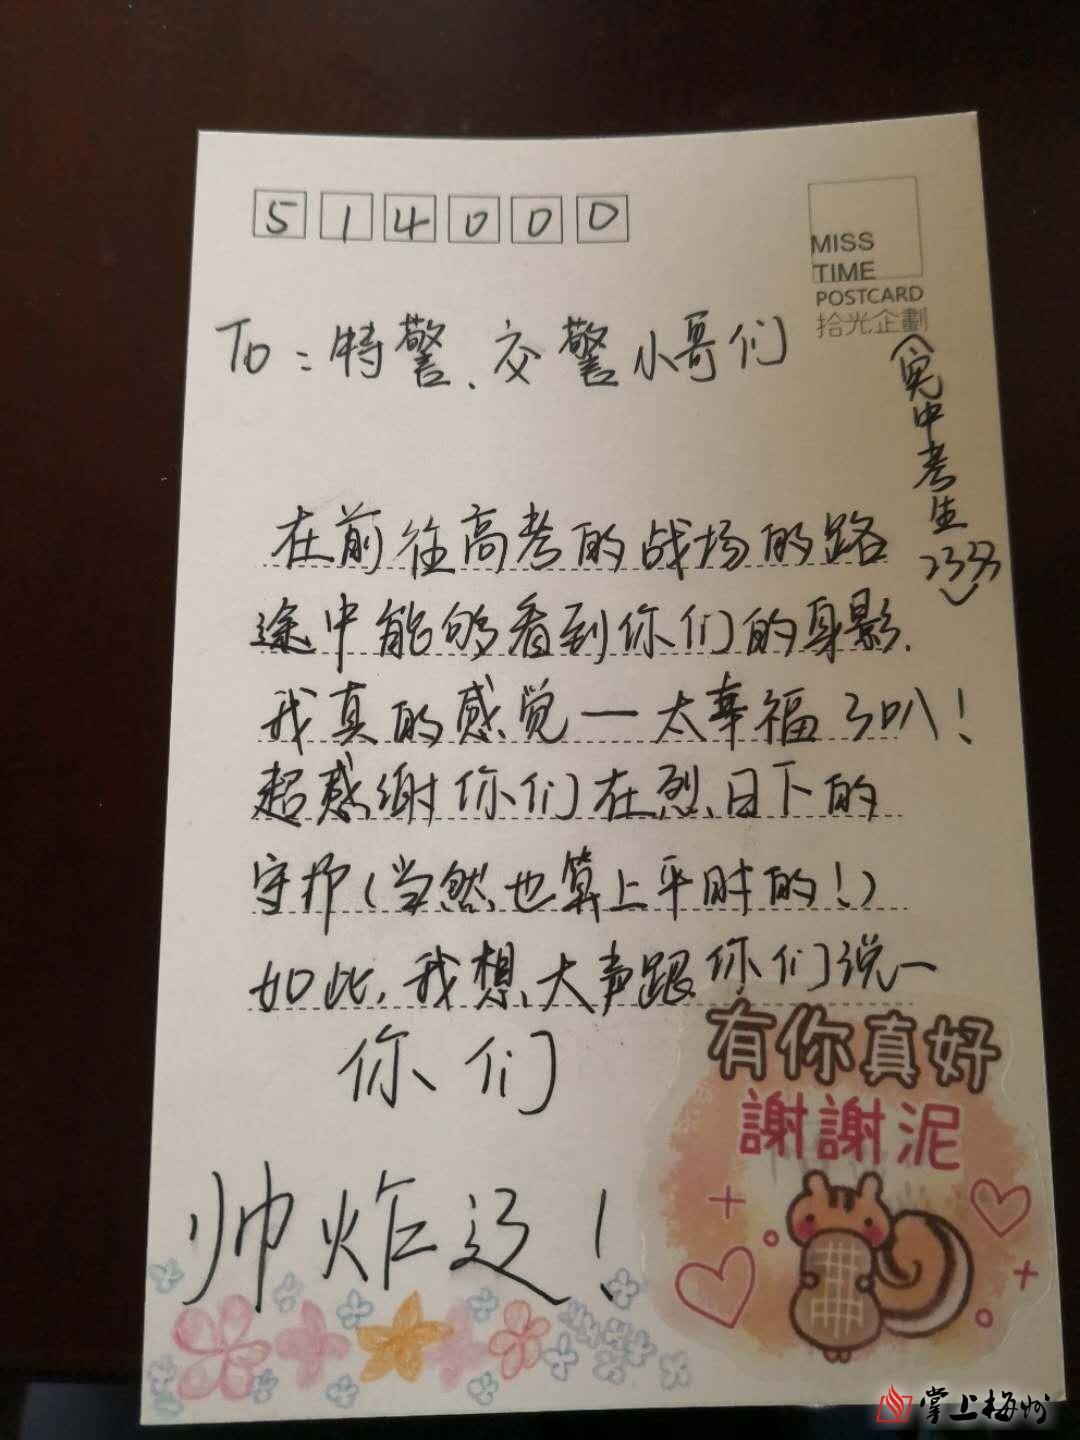 514000
MISS
TIME
POSTCARD
拾光企劃
To：特警、交警小哥们
中考生
在前往高考的战场的路
途中能够看到你们的身影.
我真的感觉一太幸福了叭！
超感谢你们在烈日下的
守护（当然也算上平时的！）
如此，我想大声跟你们说一
你们
帅炸 ！
有你真好
謝謝泥
掌上梅州